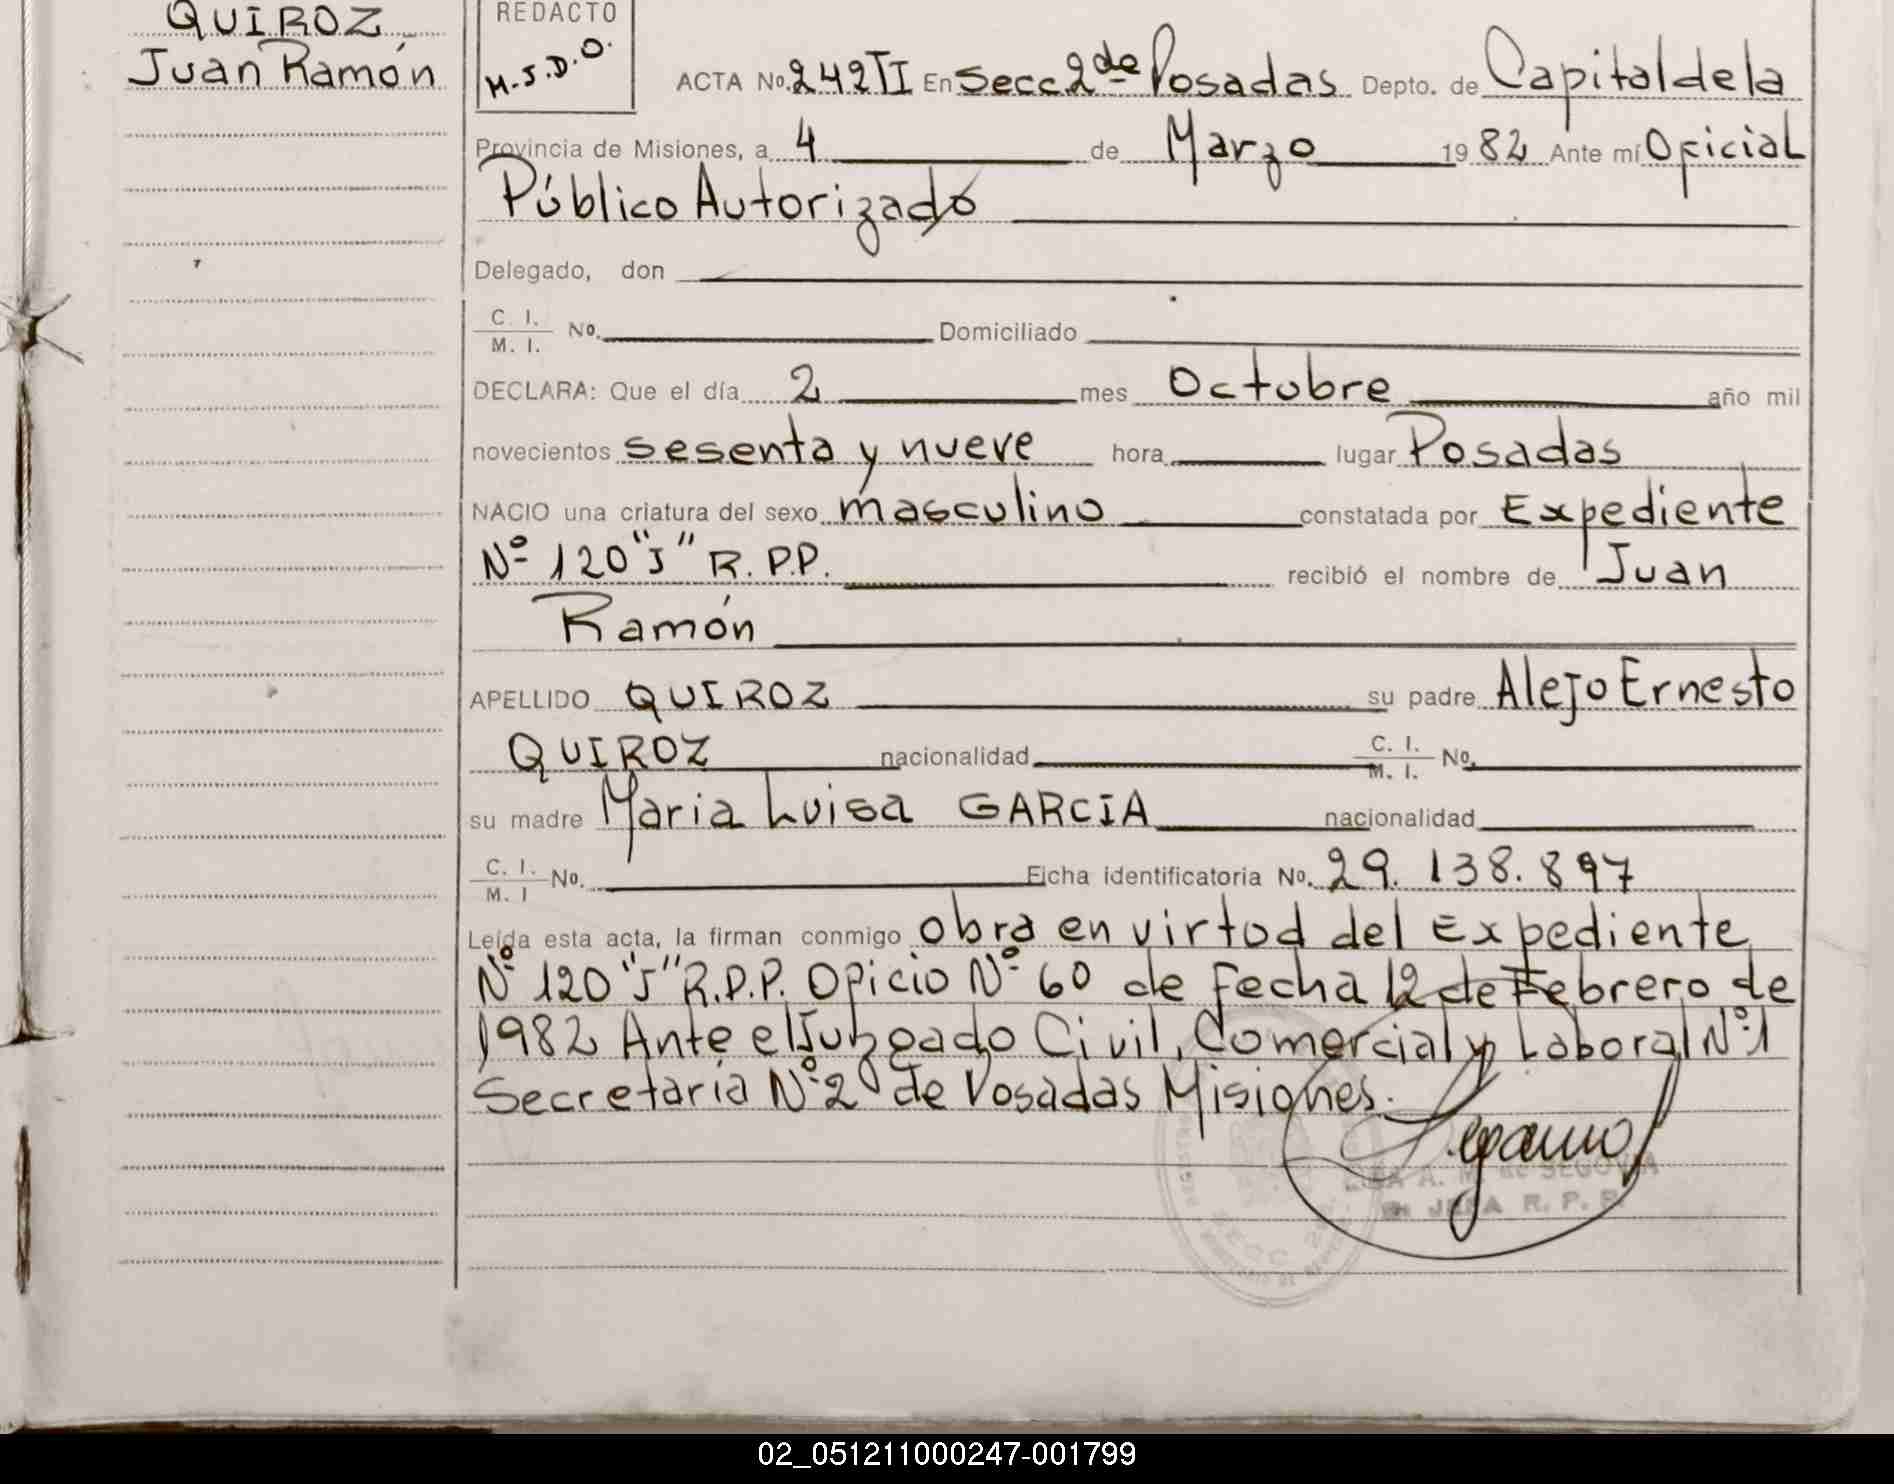 QUIROZ
Juan Ramón
REDACTO
M.J.D.O.
ACTA No. 242 II En Secc. 2de Posadas Depto. de Capital de la
Provincia de Misiones, a 4 de Marzo 1982 Ante mí Oficial
Público Autorizado
Delegado, don
C. I.
M. I. No. Domiciliado
DECLARA: Que el día 2 mes Octubre año mil
novecientos sesenta y nueve hora lugar Posadas
NACIO una criatura del sexo masculino constatada por Expediente
Nº 120 "J" R.P.P. recibió el nombre de Juan
Ramón
APELLIDO QUIROZ su padre Alejo Ernesto
QUIROZ nacionalidad C. I.
M. I. No.
su madre Maria Luisa GARCIA nacionalidad
C. I.
M. I No. Ficha identificatoria No. 29.138.897
Leída esta acta, la firman conmigo Obra en virtud del Expediente
Nº 120 "J" R.P.P. Oficio Nº 60 de Fecha 12 de Febrero de
1982 Ante el Juzgado Civil, Comercial y Laboral Nº 1
Secretaría Nº 2 de Posadas Misiones.
A. M. de SEGOVIA
JEFA R. P. P.
02_051211000247-001799